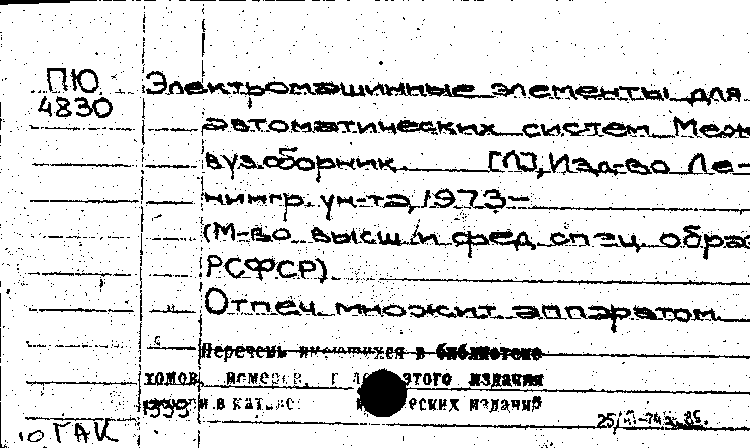 ПЮ Электромашинные элементы для
4830
автоматических систем. Меж
вуз.сборник. [Л], Изд-во Ле-
нингр. ун-та, 1973-
(М-во высш и сред. спец. образ
РСФСР).
Отпеч. множит. аппаратом.
Перечень имеющихся в библиотеке
томов, номеров, этого издания
в
25/
ГАК